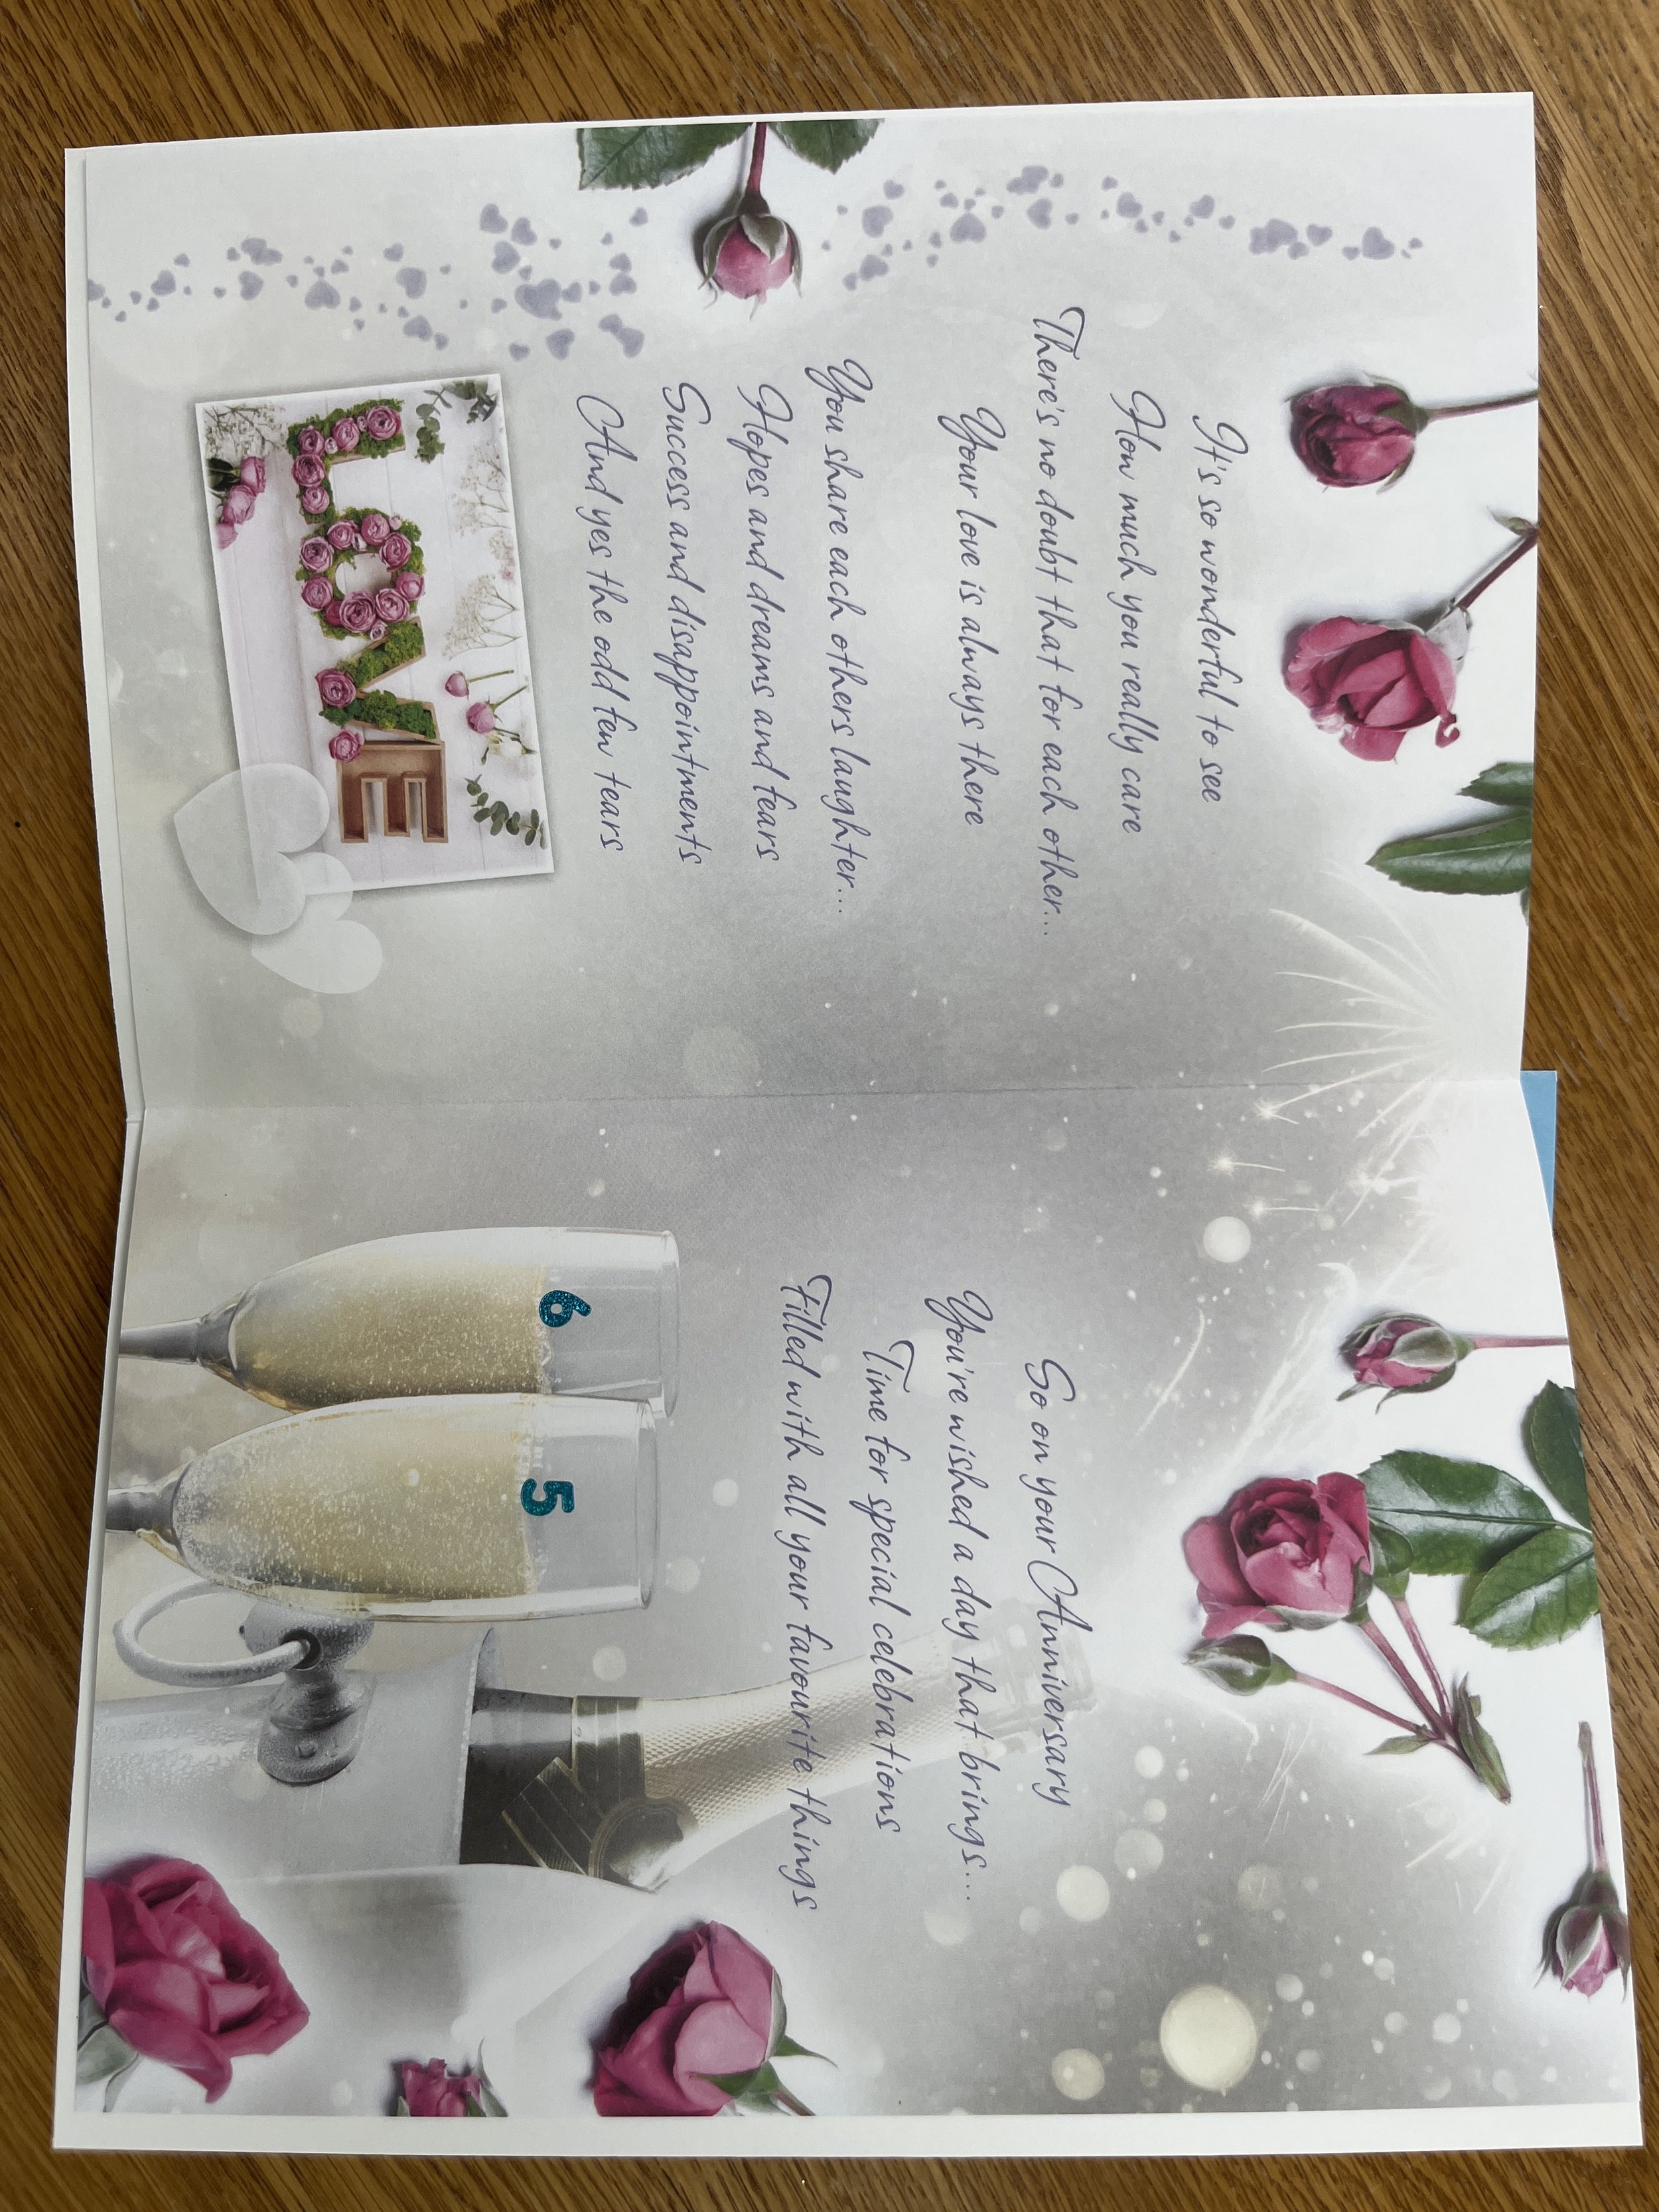 It's so wonderful to see
How much you really care
There's no doubt that for each other...
Your love is always there
You share each others laughter...
Hopes and dreams and fears
Success and disappointments
And yes the odd few tears
LOVE
So on your Anniversary
You're wished a day that brings...
Time for special celebrations
Filled with all your favourite things
6 5